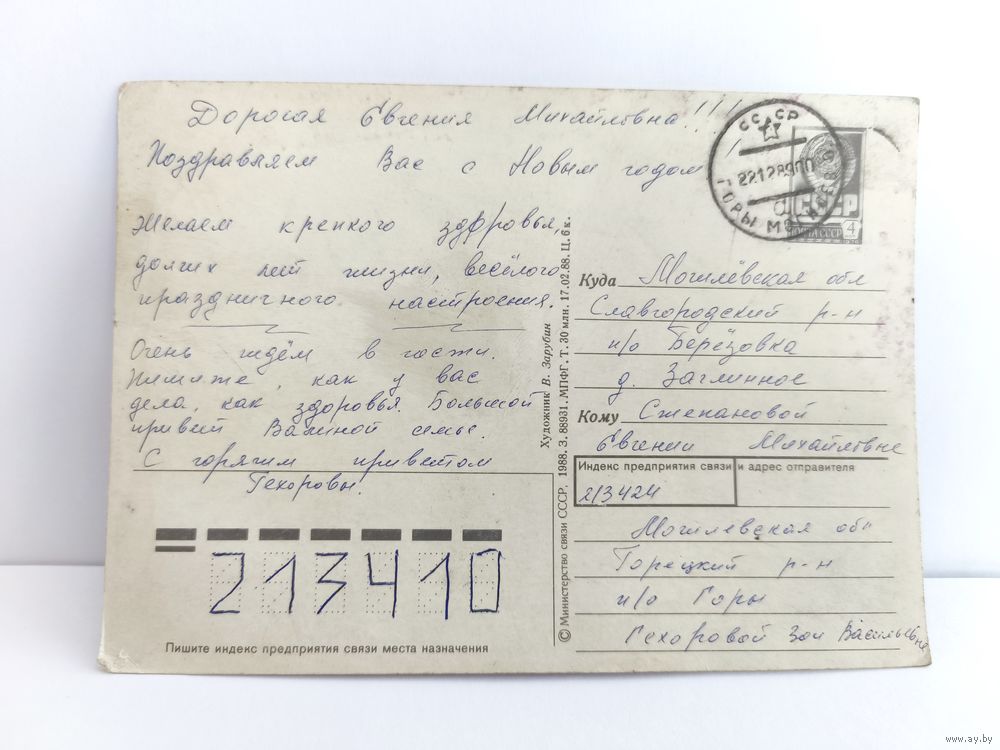 Дорогая Евгения Михайловна!!!
Поздравляем Вас с Новым годом
Желаем крепкого здоровья,
долгих лет жизни, весёлого
праздничного настроения.
Очень ждём в гости.
Пишите, как у вас
дела, как здоровья. Большой
привет Валиной семье.
С горячим приветом
213410
Пишите индекс предприятия связи места назначения
© Министерство связи СССР. 1988. З. 88931. МПФГ. Т. 30 млн. 17.02.88. Ц. 6 к.
Художник В. Зарубин
СССР
22128900
ГОРЫ
а
СССР
ПОЧТА СССР 4
Куда Могилёвская обл
Славгородский р-н
п/о Берёзовка
д. Заглинное
Кому Степановой
Евгении Михайловне
Индекс предприятия связи и адрес отправителя
213424
Могилевская обл
Горецкий р-н
п/о Горы
Зои Васильевне
www.ay.by